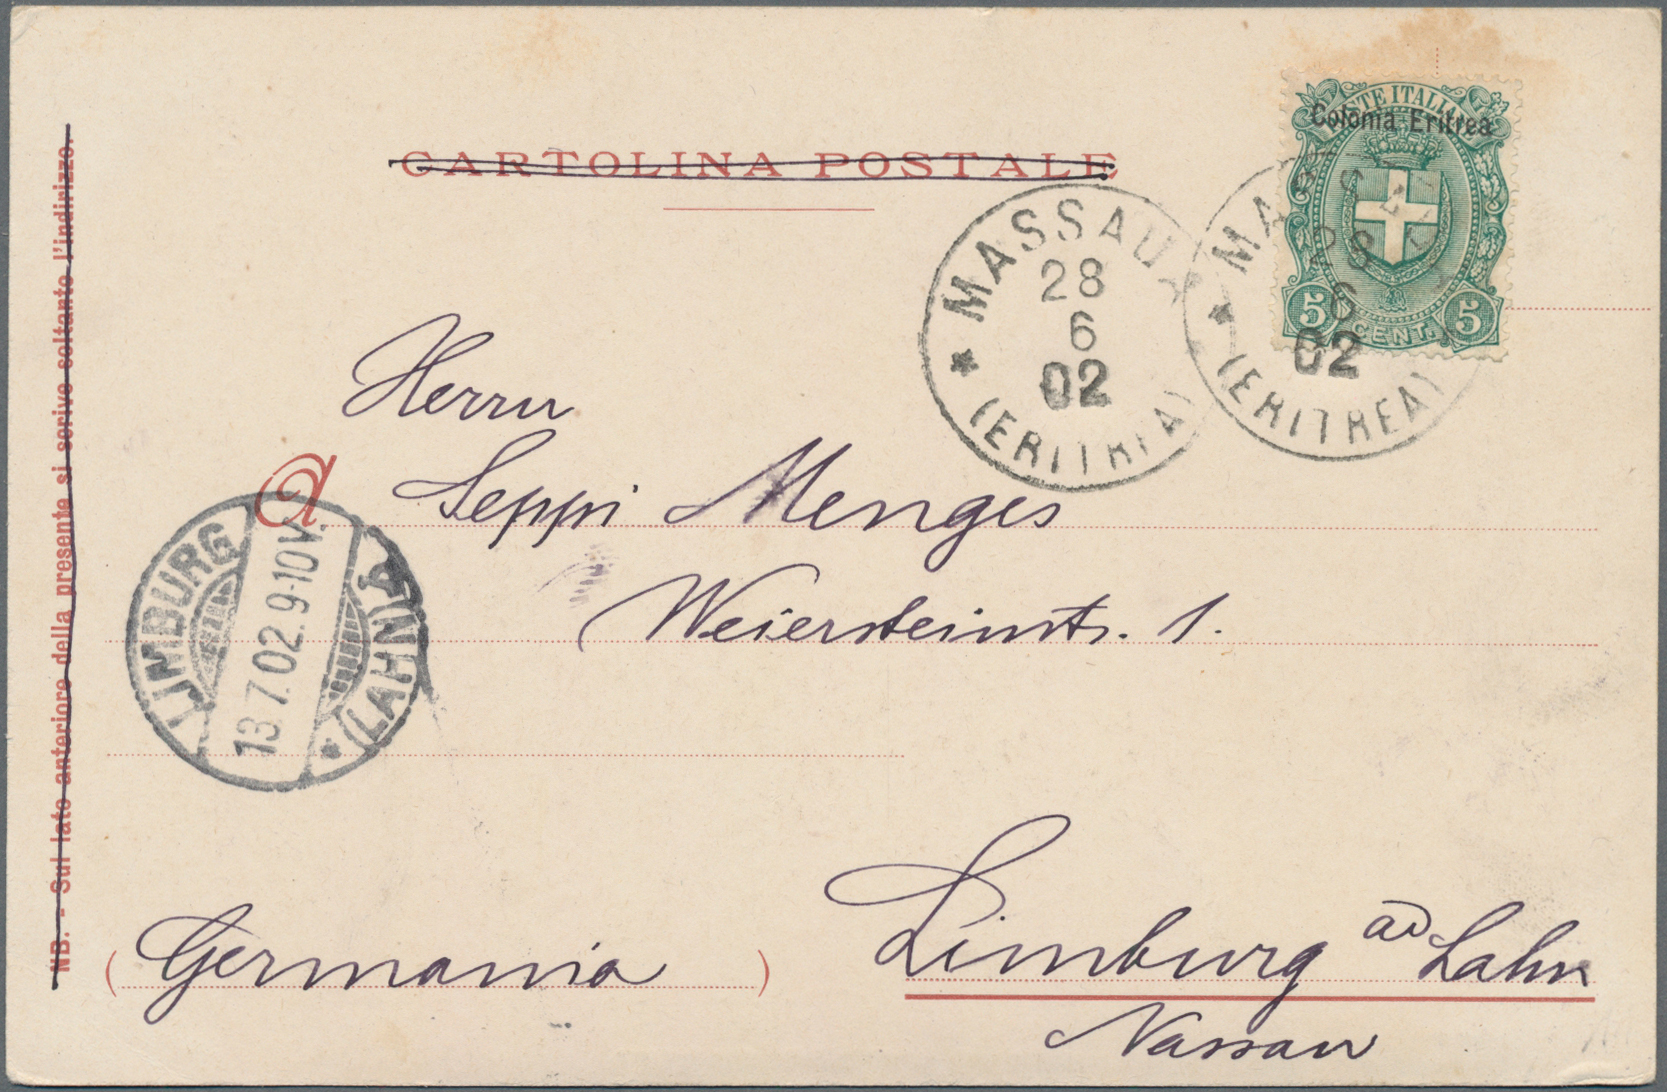 CARTOLINA POSTALE
POSTE ITALIANE
Colonia Eritrea
5 CENT. 5
MASSAUA
28
6
02
(ERITREA)
MASSAUA
28
6
02
(ERITREA)
NB. - Sul lato anteriore della presente si scrive soltanto l'indirizzo.
Herrn
A Seppi Menges
Weiersteinstr. 1.
LIMBURG
13.7.02.9-10V.
* (LAHN) b
Limburg ad Lahn
(Germania)
Nassau